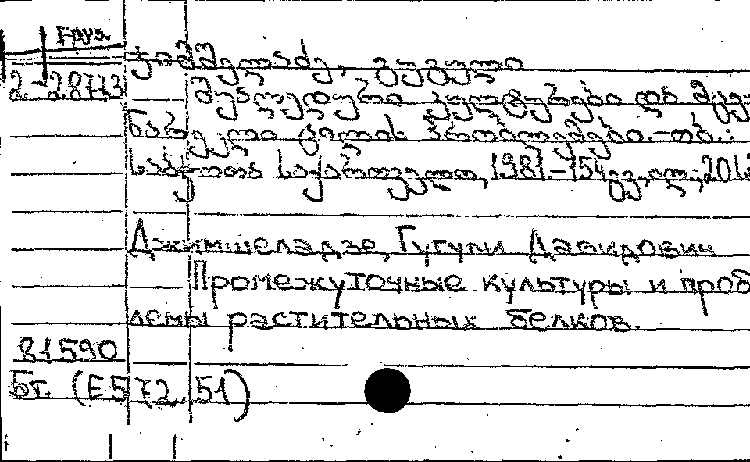 Груз.
ჯიმშელაძე, გუგული
2.-28773 შუალედური კულტურები და მცე-
ნარეული ცილის პრობლემები.-თბ.:
საბჭოთა საქართველო, 1981.-154გვ.,ილ.;20
Джимшеладзе, Гугули Давидович
Промежуточные культуры и проб
лемы растительных белков.
81590
Бт. (Е572.51)